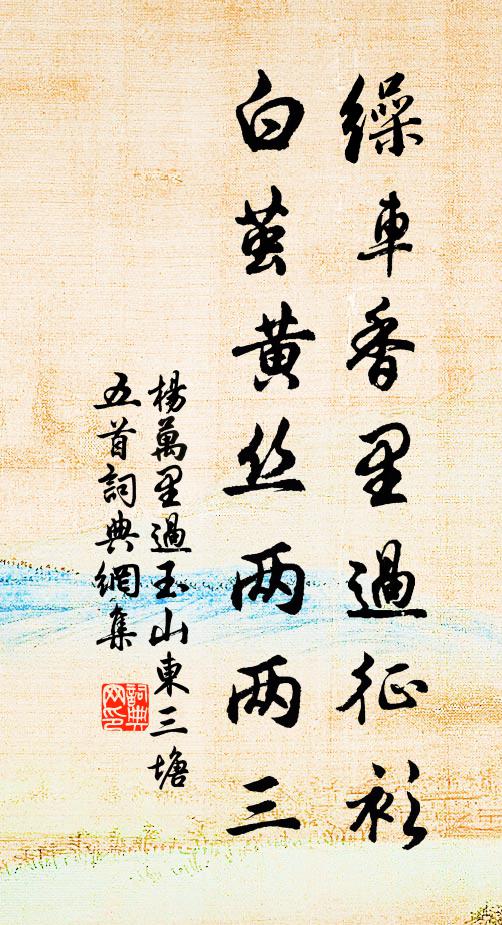 繰車香里過征衫
白茧黃丝两两三
楊萬里過玉山東三塘
五首詞典網集
詞典
网印